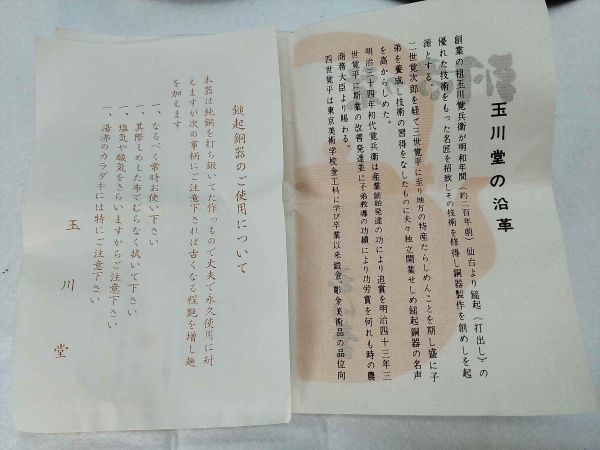 玉川堂の沿革
創業の祖玉川覚兵衛が明和年間（約二百年前）仙台より鎚起（打出し）の
優れた技術をもった名匠を招致しその技術を修得し銅器製作を創めしを起
源とする。
二世覚次郎を経て三世覚平に至り地方の特産たらしめんことを期し盛に子
弟を養成し技術の習得をなしたものに夫々独立開業せしめ鎚起銅器の名声
を高からしめた。
明治三十四年初代覚兵衛は産業創始発達の功により追賞を明治四十三年三
世覚平に斯業の改善発達並に子弟教導の功績により功労賞を何れも時の農
商務大臣より賜わる。
四世覚平は東京美術学校金工科に学び卒業以来鍛金、彫金美術品の品位向
鎚起銅器のご使用について
本器は純銅を打ち継いてた作つもので丈夫で永久使用に耐
えますが次の事柄にご注意下されば古くなる程艶を増し趣
を加えます
一、なるべく常時お使い下さい
一、其際しめした布でむらなく拭いて下さい
一、塩気や酸気をきらいますからご注意下さい
一、湯沸のカラダキには特にご注意下さい
玉川堂